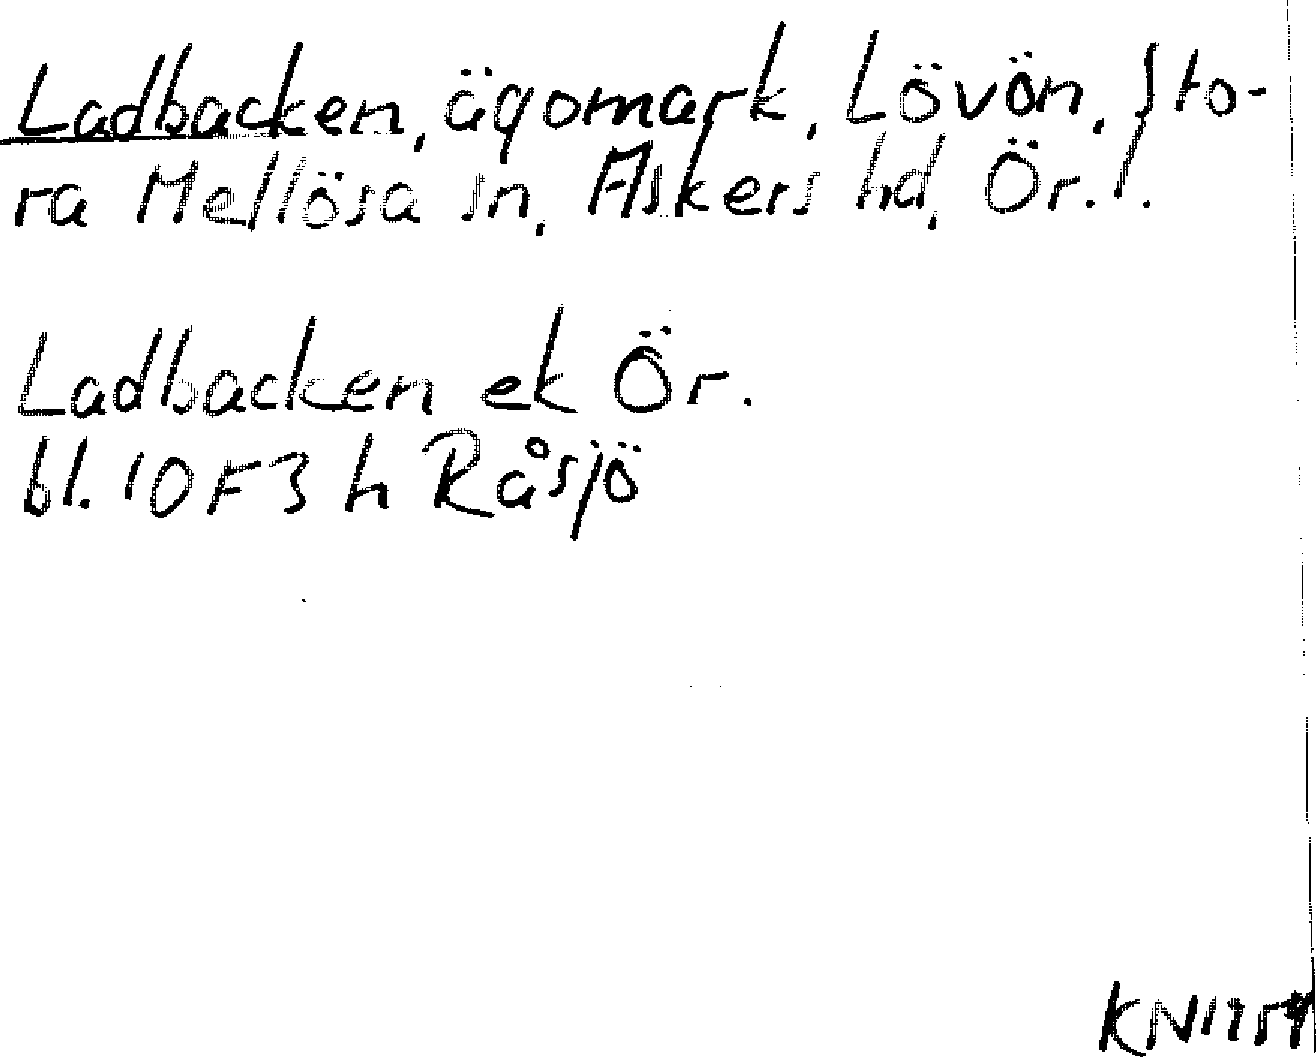 Ladbacken, ägomark, Lövön, Sto-
ra Mellösa sn, Askers hd, Ör. l.
Ladbacken ek Ör.
bl. 10F3 h Råsjö